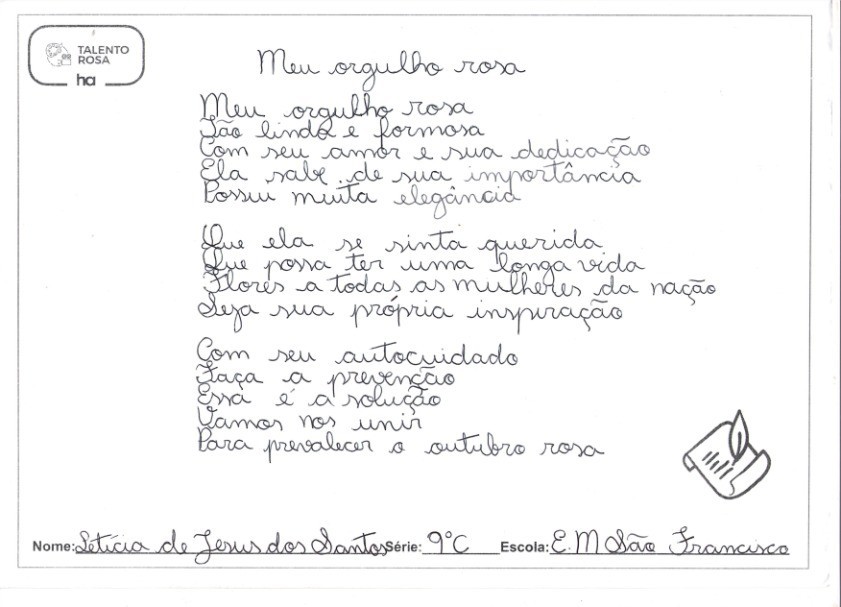 TALENTO
ROSA
ha
Meu orgulho rosa
Meu orgulho rosa
Tão linda e formosa
Com seu amor e sua dedicação
Ela sabe de sua importância
Possui muita elegância
Que ela se sinta querida
Que possa ter uma longa vida
Flores a todas as mulheres da nação
Seja sua própria inspiração
Com seu autocuidado
Faça a prevenção
Essa é a solução
Vamos nos unir
Para prevalecer o outubro rosa
Nome: Letícia de Jesus dos Santos Série: 9°C Escola: E.M São Francisco